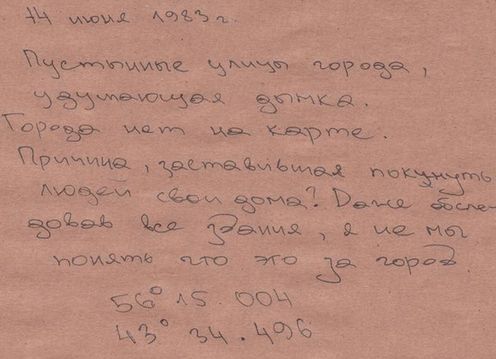 14 июня 1983 г.
Пустынные улицы города,
удумающая дымка.
Города нет на карте.
Причина, заставившая покинуть
людей свои дома? Даже обсле-
довав все здания, я не мог
понять что это за город
56° 15.004
43° 34.496